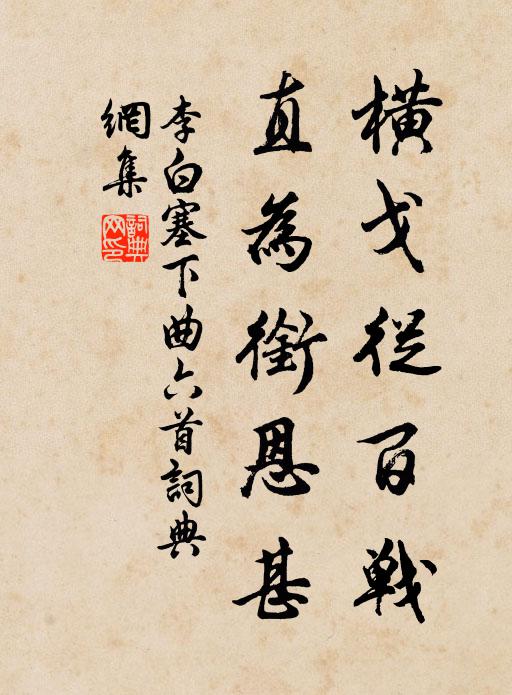 橫戈從百戰
直為銜恩甚
李白塞下曲六首詞典
網集
詞典
網印